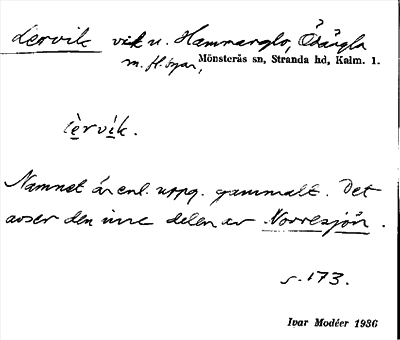 Lervik vik v. Hammarglo, Ödängla
m. fl. byar, Mönsterås sn, Stranda hd, Kalm. l.
lèrvík.
Namnet är enl. uppg. gammalt. Det
avser den inre delen av Norresjön.
s. 173.
Ivar Modéer 1936